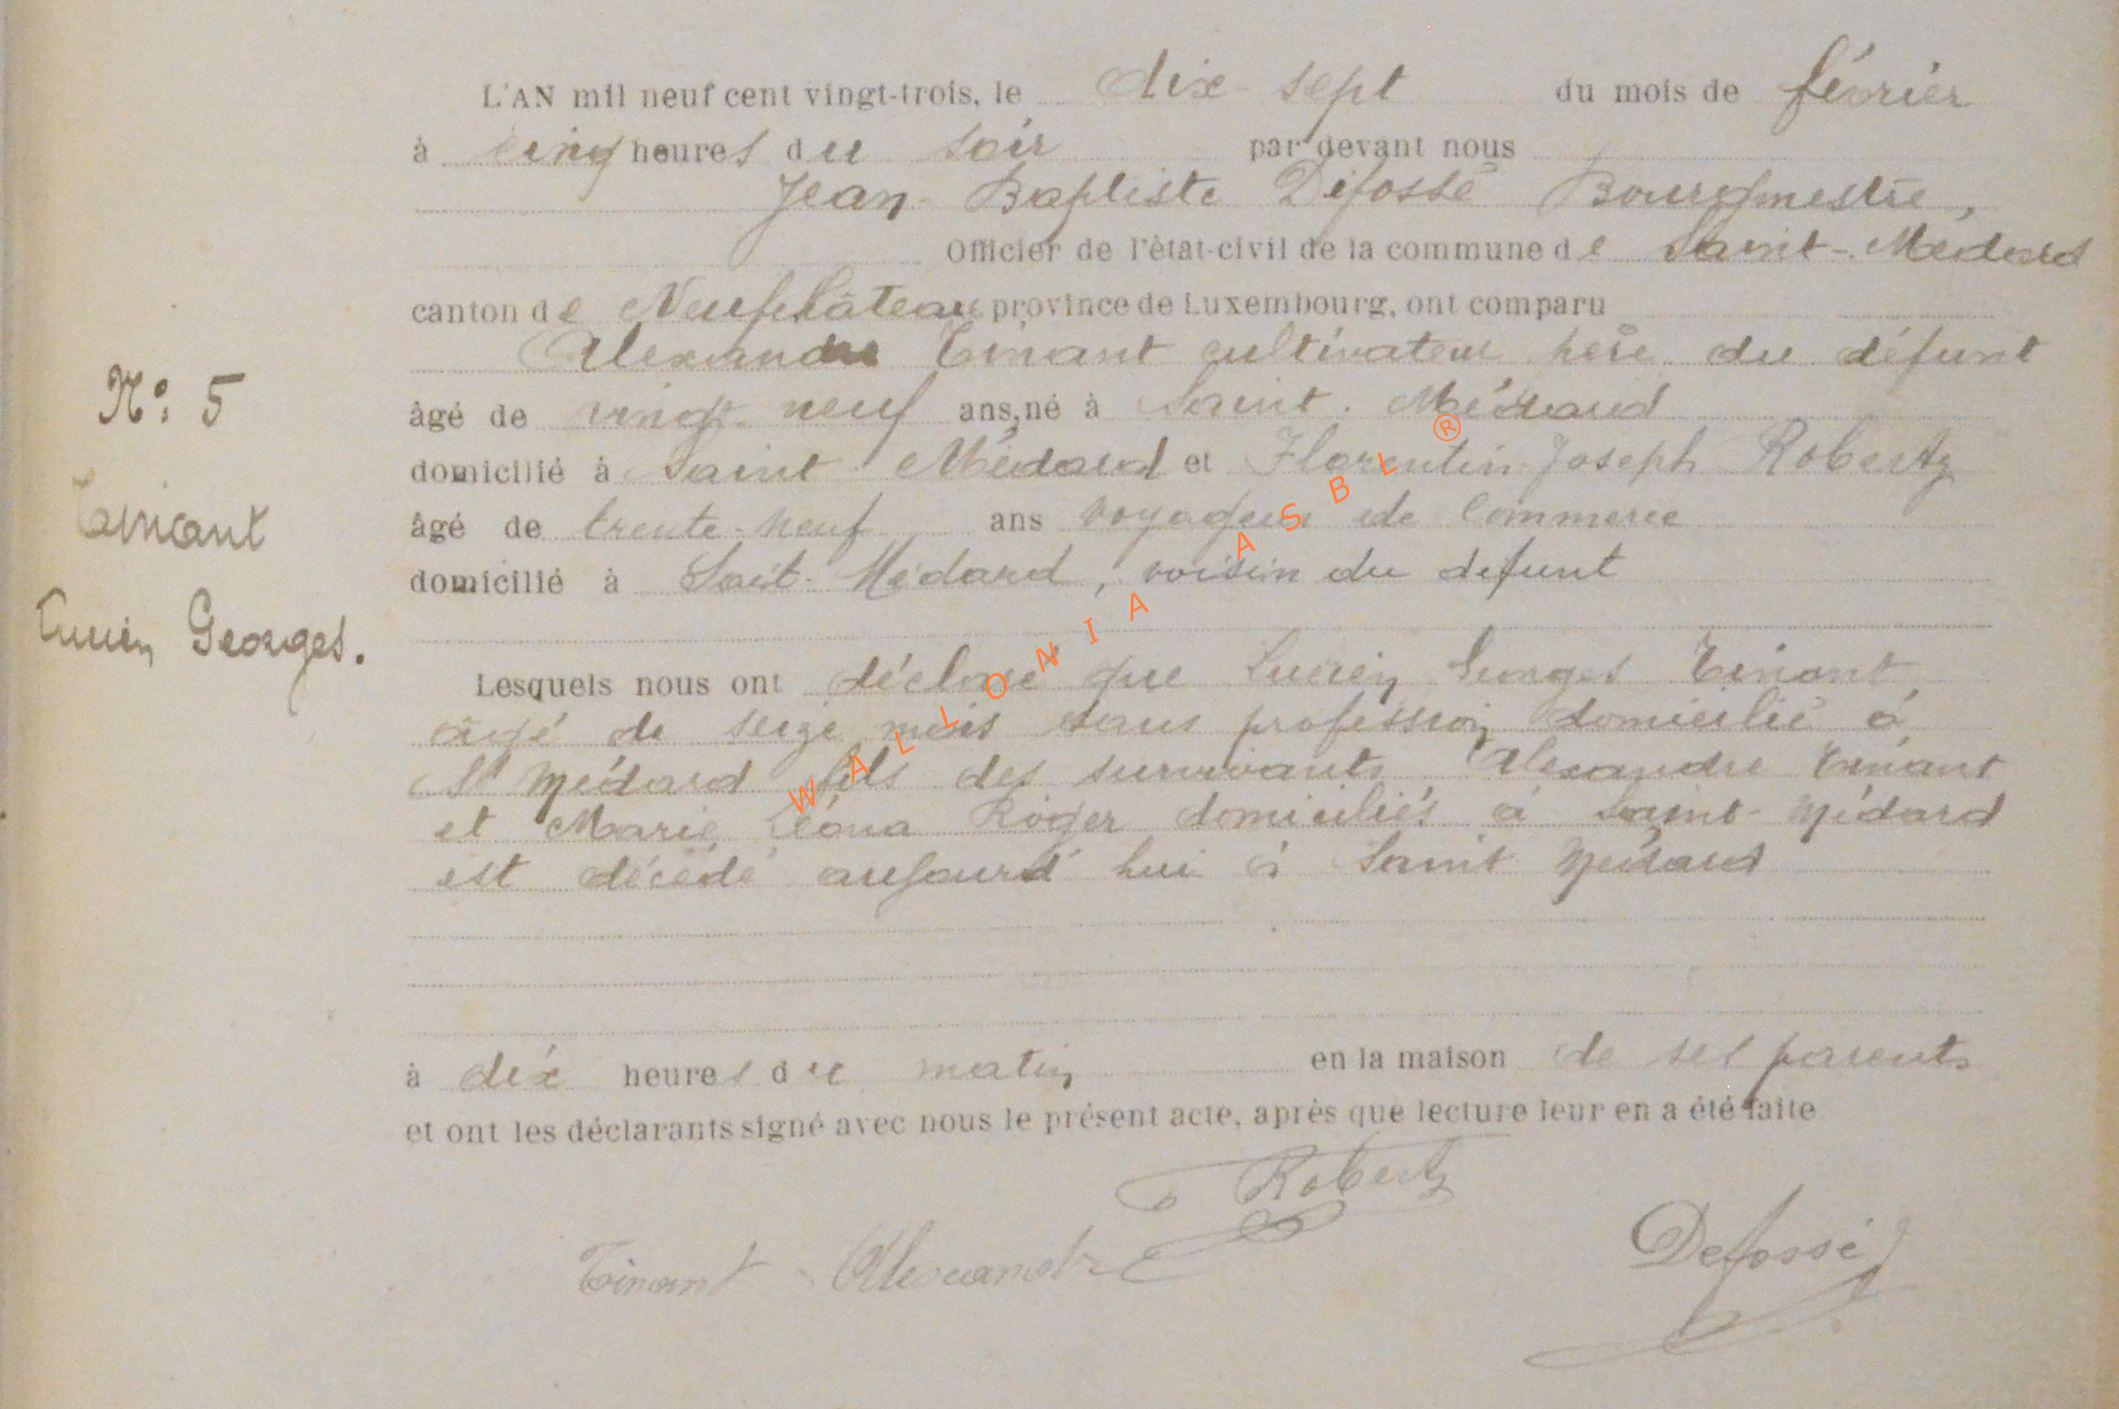 L'AN mil neuf cent vingt-trois, le dix-sept du mois de février
à cinq heures du soir par devant nous
Jean-Baptiste Defossé Bourgmestre,
Officier de l'état-civil de la commune de Saint-Médard
canton de Neufchâteau province de Luxembourg, ont comparu
Alexandre Tinant cultivateur père du défunt
âgé de vingt-neuf ans, né à Saint-Médard
domicilié à Saint-Médard et Florentin Joseph Robertz
âgé de trente-neuf ans voyageur de Commerce
domicilié à Saint-Médard, voisin du défunt
N°: 5
Tinant
Lucien Georges.
Lesquels nous ont déclaré que Lucien Georges Tinant
âgé de seize mois sans profession domicilié à
St Médard fils des survivants Alexandre Tinant
et Marie, Léona Roger domiciliés à Saint-Médard
est décédé aujourd'hui à Saint Médard
à dix heures du matin en la maison de ses parents
et ont les déclarants signé avec nous le présent acte, après que lecture leur en a été faite
Robertz
Tinant Alexandre
Defossé
WALLONIA ASBL ®